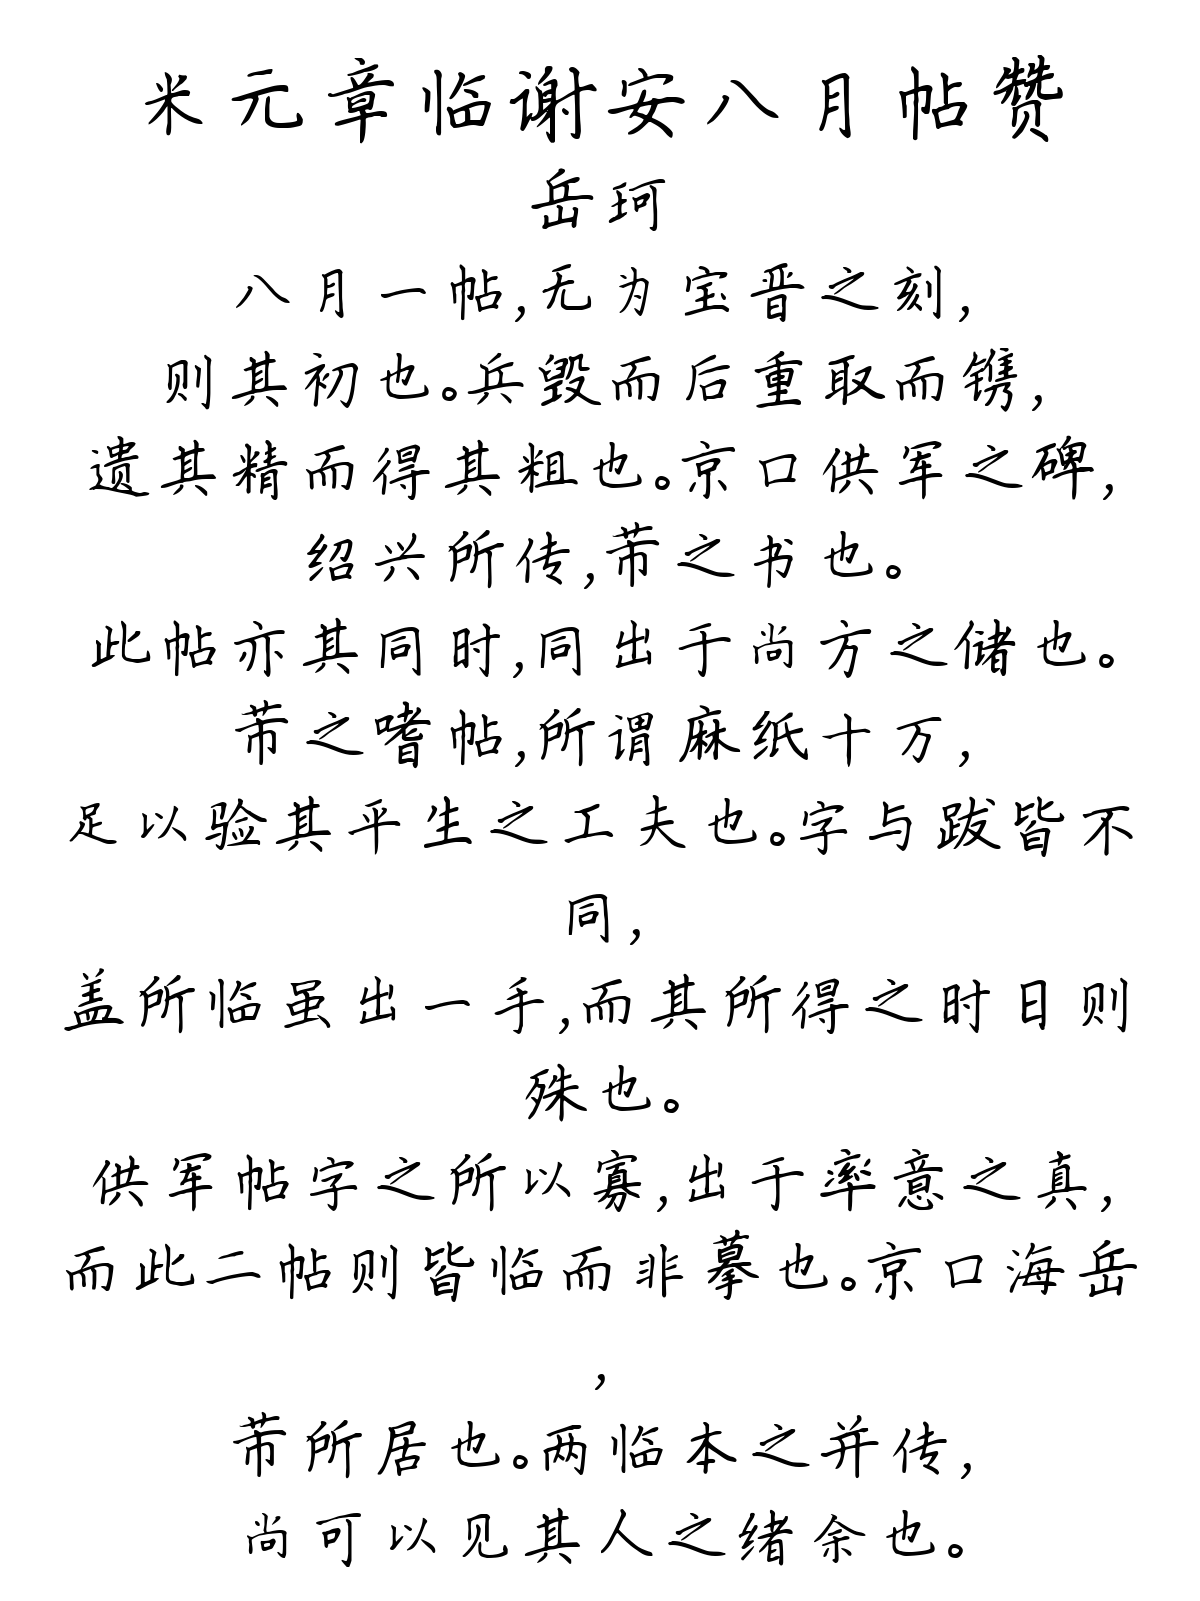 米元章临谢安八月帖赞
岳珂
八月一帖,无为宝晋之刻,
则其初也。兵毁而后重取而镌,
遗其精而得其粗也。京口供军之碑,
绍兴所传,芾之书也。
此帖亦其同时,同出于尚方之储也。
芾之嗜帖,所谓麻纸十万,
足以验其平生之工夫也。字与跋皆不
同,
盖所临虽出一手,而其所得之时日则
殊也。
供军帖字之所以寡,出于率意之真,
而此二帖则皆临而非摹也。京口海岳
,
芾所居也。两临本之并传,
尚可以见其人之绪余也。